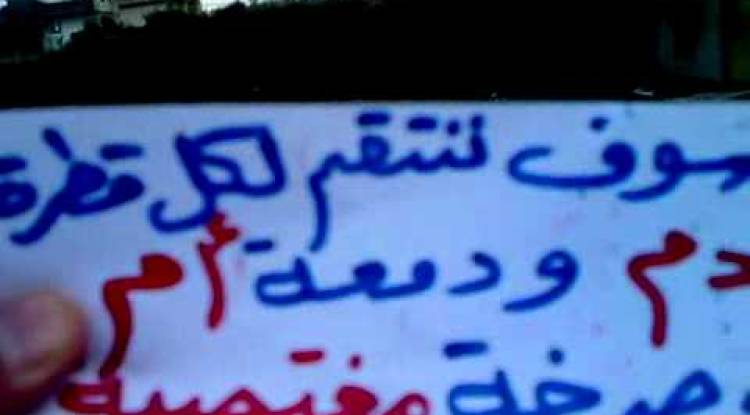 سوف ننتقم لكل قطرة
دم ودمعة أم
وصرخة مغتصبة